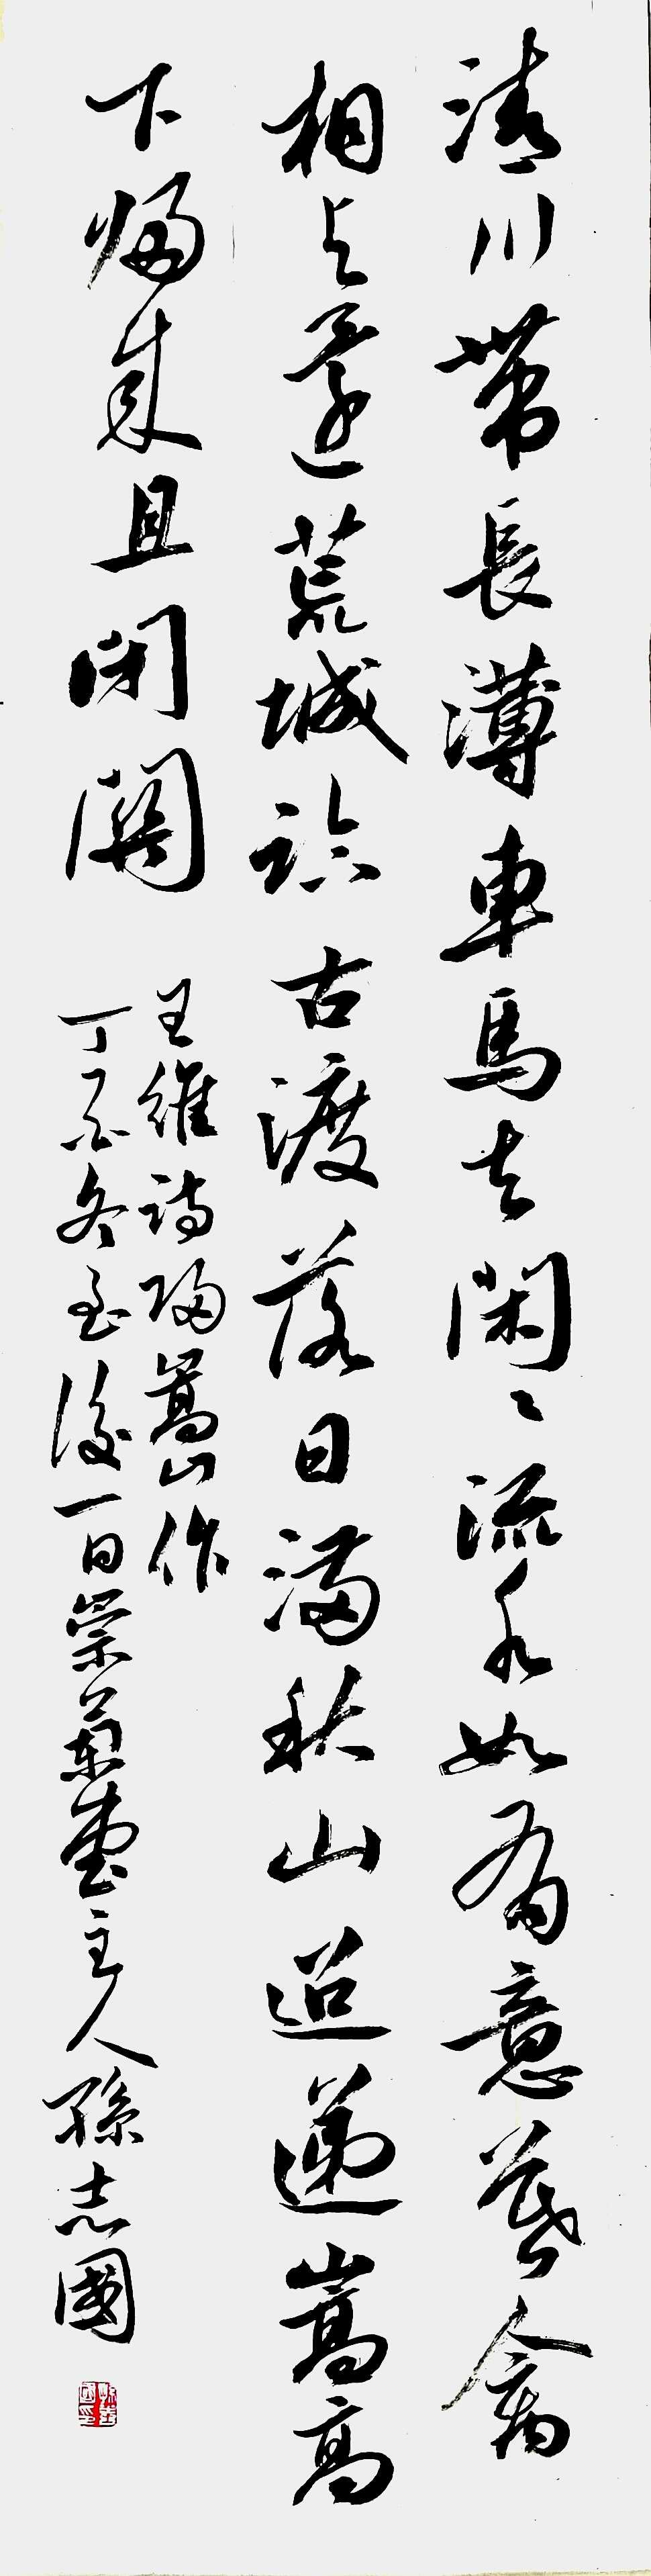 清川帶長薄車馬去閑〻流水如有意暮禽
相與還荒城臨古渡落日滿秋山迢遞嵩高
下歸來且閉關
王維詩歸嵩山作
丁酉冬至後一日崇蘭堂主人孫志國